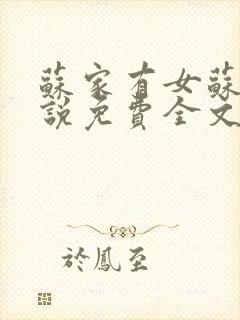 蘇家有女蘇
說免費全文
於鳳至